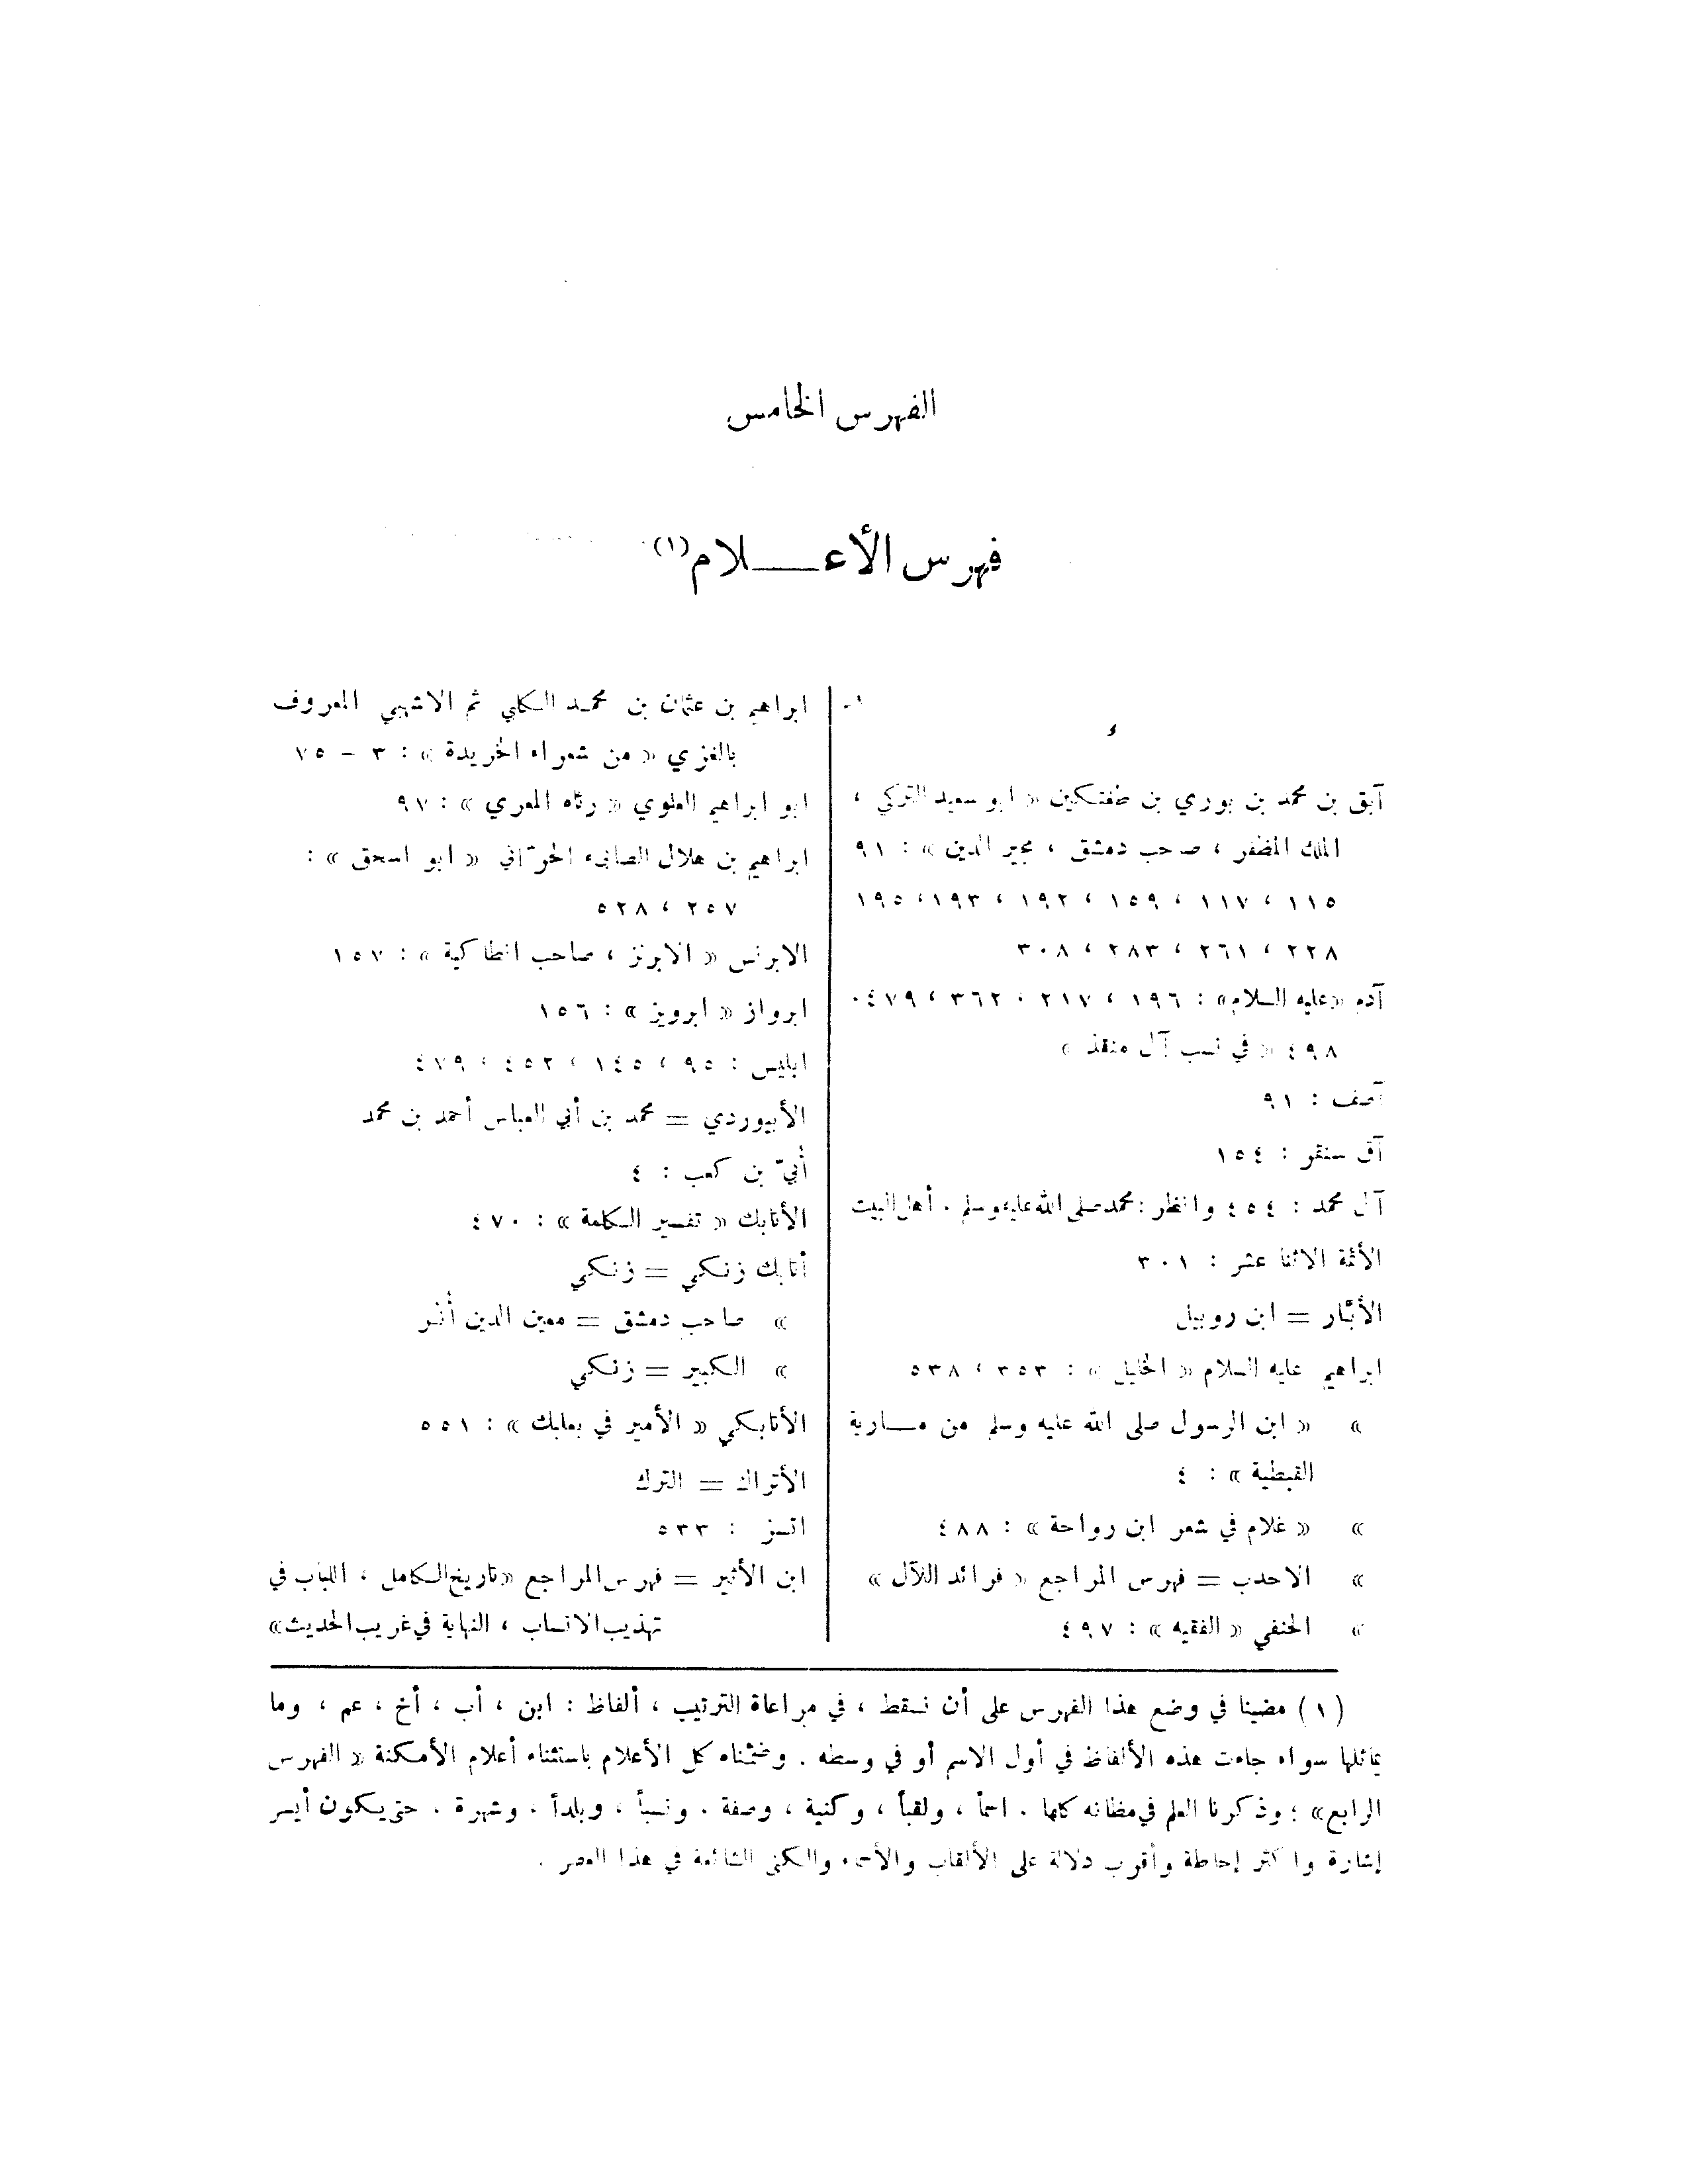 الفهرس الخامس
فهرس الأعـــلام (١)
ء
آبق بن محمد بن بوري بن طغتكين « ابو سعيد التركي ،
الملك المظفر ، صاحب دمشق ، مجير الدين » : ٩١
١١٥ ، ١١٧ ، ١٥٩ ، ١٩٢ ، ١٩٣ ، ١٩٥
٢٢٨ ، ٢٦١ ، ٢٨٣ ، ٣٠٨
آدم «عليه السلام» : ١٩٦ ، ٢١٧ ، ٣٦٢ ، ٤٧٩ ،
٤٩٨ « في نسب آل منقذ »
آصف : ٩١
آق سنقر : ١٥٤
آل محمد : ٤٥٤ وانظر : محمد صلى الله عليه وسلم . أهل البيت
الأئمة الاثنا عشر : ٣٠١
الأبّار = ابن روبيل
ابراهيم عليه السلام « الخليل » : ٣٥٣ ، ٥٣٨
» « ابن الرسول صلى الله عليه وسلم من مــارية
القبطية » : ٤
» « غلام في شعر ابن رواحة » : ٤٨٨
» الاحدب = فهرس المراجع « فرائد اللآل »
» الحنفي « الفقيه » : ٤٩٧
ابراهيم بن عثمان بن محمد الكلبي ثم الاشهبي المعروف
بالغزي « من شعراء الخريدة » : ٣ – ٧٥
ابو ابراهيم العلوي « رثاه المعري » : ٩٧
ابراهيم بن هلال الصابىء الحرّاني « ابو اسحق » :
٢٥٧ ، ٥٢٨
الابرنس « الابرنز ، صاحب انطاكية » : ١٥٧
ابرواز « ابرويز » : ١٥٦
ابليس : ٩٥ ، ١٤٥ ، ٤٥٢ ، ٤٧٩
الأبيوردي = محمد بن أبي العباس أحمد بن محمد
أُبيّ بن كعب : ٤
الأتابك « تفسير الكلمة » : ٤٧٠
أتابك زنكي = زنكي
» صاحب دمشق = معين الدين أُنر
» الكبير = زنكي
الأتابكي « الأمير في بعلبك » : ٥٥١
الأتراك = الترك
اتسز : ٥٣٣
ابن الأثير = فهرس المراجع «تاريخ الكامل ، اللباب في
تهذيب الانساب ، النهاية في غريب الحديث»
(١) مضينا في وضع هذا الفهرس على أن نسقط ، في مراعاة الترتيب ، ألفاظ : ابن ، أب ، أخ ، عم ، وما
يماثلها سواء جاءت هذه الألفاظ في أول الاسم أو في وسطه . وضمّناه كل الأعلام باستثناء أعلام الأمكنة « الفهرس
الرابع» ؛ وذكرنا العلم في مظانه كلها . اسماً ، ولقباً ، وكنية ، وصفة ، ونسباً ، وبلداً ، وشهرة ، حتى يكون أيسر
إشارة واكثر إحاطة وأقرب دلالة على الألقاب والأسماء والكنى الشائعة في هذا العصر .